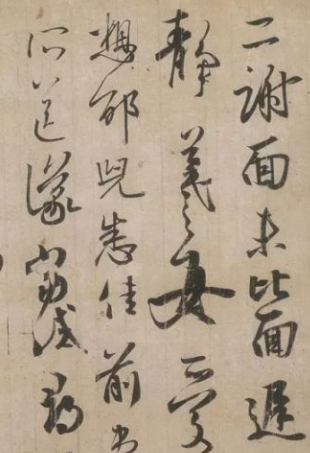 二謝面未比面遲
靜羲之女愛
想邵兒悉佳前
所送議當試尋